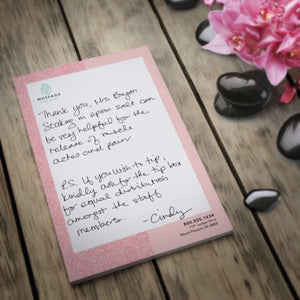 MASSAGE
Thank you, Mrs. Bryan.
Soaking in epson salt can
be very helpful for the
release of muscle
aches and pain.
P.S. If you wish to tip,
kindly add to the tip box
for equal distribution
amongst the staff
members. - Cindy
800.555.1234
1101 Juniper Drive
Mount Pleasant, MI 48858